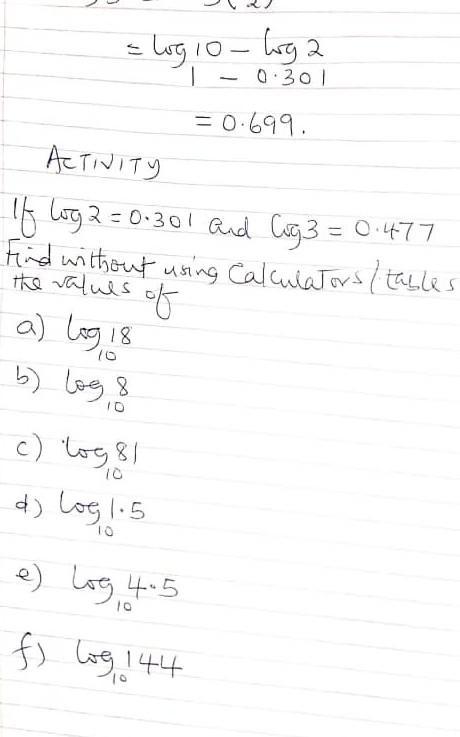 = log 10 - log 2
1 - 0.301
= 0.699.
ACTIVITY
If log 2 = 0.301 and log 3 = 0.477
Find without using Calculators / tables
the values of
a) log₁₀ 18
b) log₁₀ 8
c) log₁₀ 81
d) log₁₀ 1.5
e) log₁₀ 4.5
f) log₁₀ 144